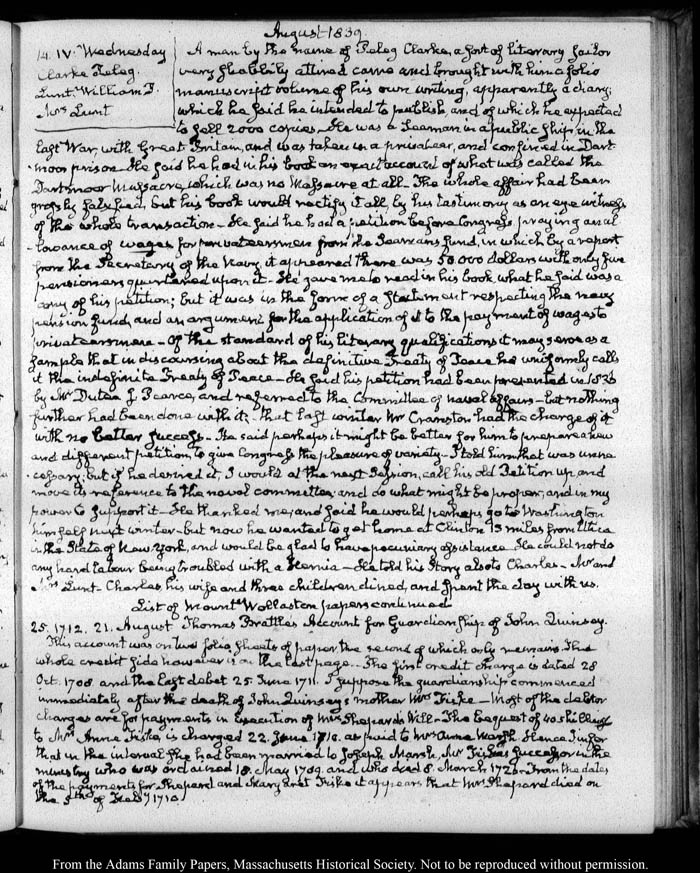 August 1839
14. IV. Wednesday
Clarke Peleg.
Lunt. William P.
Mrs Lunt
A man by the name of Peleg Clarke, a sort of literary sailor
very shabbily attired came and brought with him a folio
manuscript volume of his own writing, apparently a diary;
which he said he intended to publish, and of which he expected
to sell 2000 copies. He was a Seaman in a public ship in the
last War, with Great Britain, and was taken in a privateer, and confined in Dart-
moor prison. He said he had in his book an exact account of what was called the
Dartmoor Massacre, which was no Massacre at all. The whole affair had been
grossly falsified, but his book would rectify it all, by his testimony as an eye witness
of the whole transaction. He said he had a petition before Congress, praying an al-
lowance of wages for privateersmen from the Seamans fund, in which by a report
from the Secretary of the Navy, it appeared there was 50 000 dollars with only five
pensioners quartered upon it. He gave me to read in his book, what he said was a
copy of his petition; but it was in the form of a Statement respecting the navy
pension fund, and an argument for the application of it to the payment of wages to
privateersmen. Of the standard of his literary qualifications it may serve as a
sample that in discoursing about the definitive Treaty of Peace he uniformly calls
it the indefinite Treaty of Peace. He said his petition had been presented in 1836
by Mr Dutee J. Pearce, and referred to the Committee of naval affairs. but nothing
further had been done with it; that last winter Mr Cranston had the charge of it
with no better success. He said perhaps it might be better for him to prepare a new
and different petition, to give Congress the pleasure of variety. I told him that was unne-
cessary; but if he desired it, I would at the next Session, call his old Petition up, and
move its reference to the naval committee and do what might be proper, and in my
power to support it. He thanked me, and said he would perhaps go to Washington
himself next winter but now he wanted to get home at Clinton 15 miles from Utica
in the State of New York, and would be glad to have pecuniary assistance. He could not do
any hard labour being troubled with a Hernia. He told his Story also to Charles. Mr and
Mrs Lunt. Charles, his wife and three children dined, and spent the day with us.
List of Mount Wollaston papers continued
25. 1712. 21. August Thomas Brattle's Account for Guardianship of John Quinsey.
This account was on two folio sheets of paper the second of which only remains. The
whole credit side however is on the last page. The first credit charge is dated 28
Oct. 1708. and the last debit 25. June 1711. I suppose the guardianship commenced
immediately after the death of John Quinsey's mother Mrs Fiske. Most of the debtor
charges are for payments in execution of Mrs Shepard's Will. The bequest of 40 shillings
to Mrs Anne Fiske is charged 22. June 1710. as paid to Mrs Anne Marsh. Hence I infer
that in the interval she had been married to Joseph Marsh, Mr Fiske's successor in the
ministry who was ordained 18. May 1709. and who died 8. March 1726. From the dates
of the payments for Shepard and Margaret Fiske it appears that Mrs Shepard died on
the 5th of Feby 1710
From the Adams Family Papers, Massachusetts Historical Society. Not to be reproduced without permission.